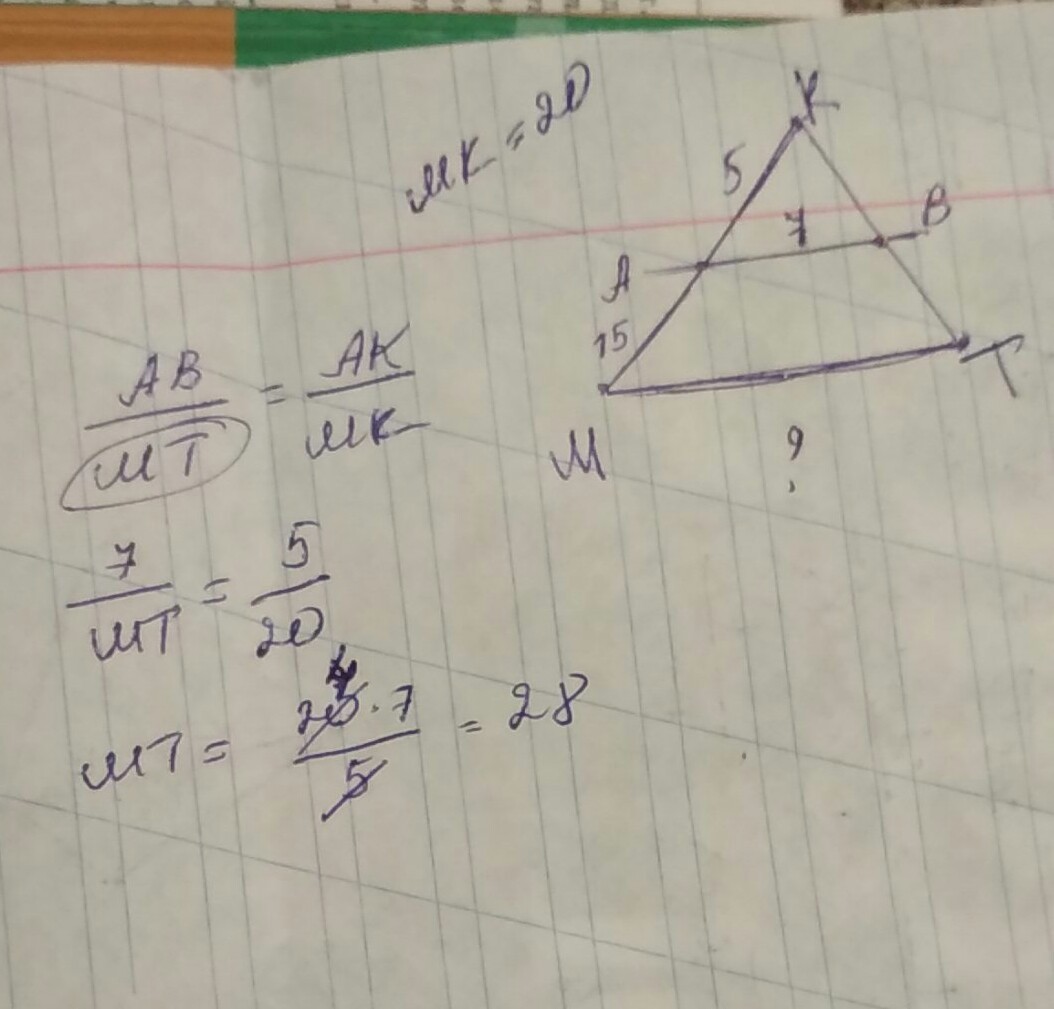 MK = 20
K
5
7
B
A
15
M
T
?
AB/MT = AK/MK
7/MT = 5/20
4
MT = 20·7/5 = 28